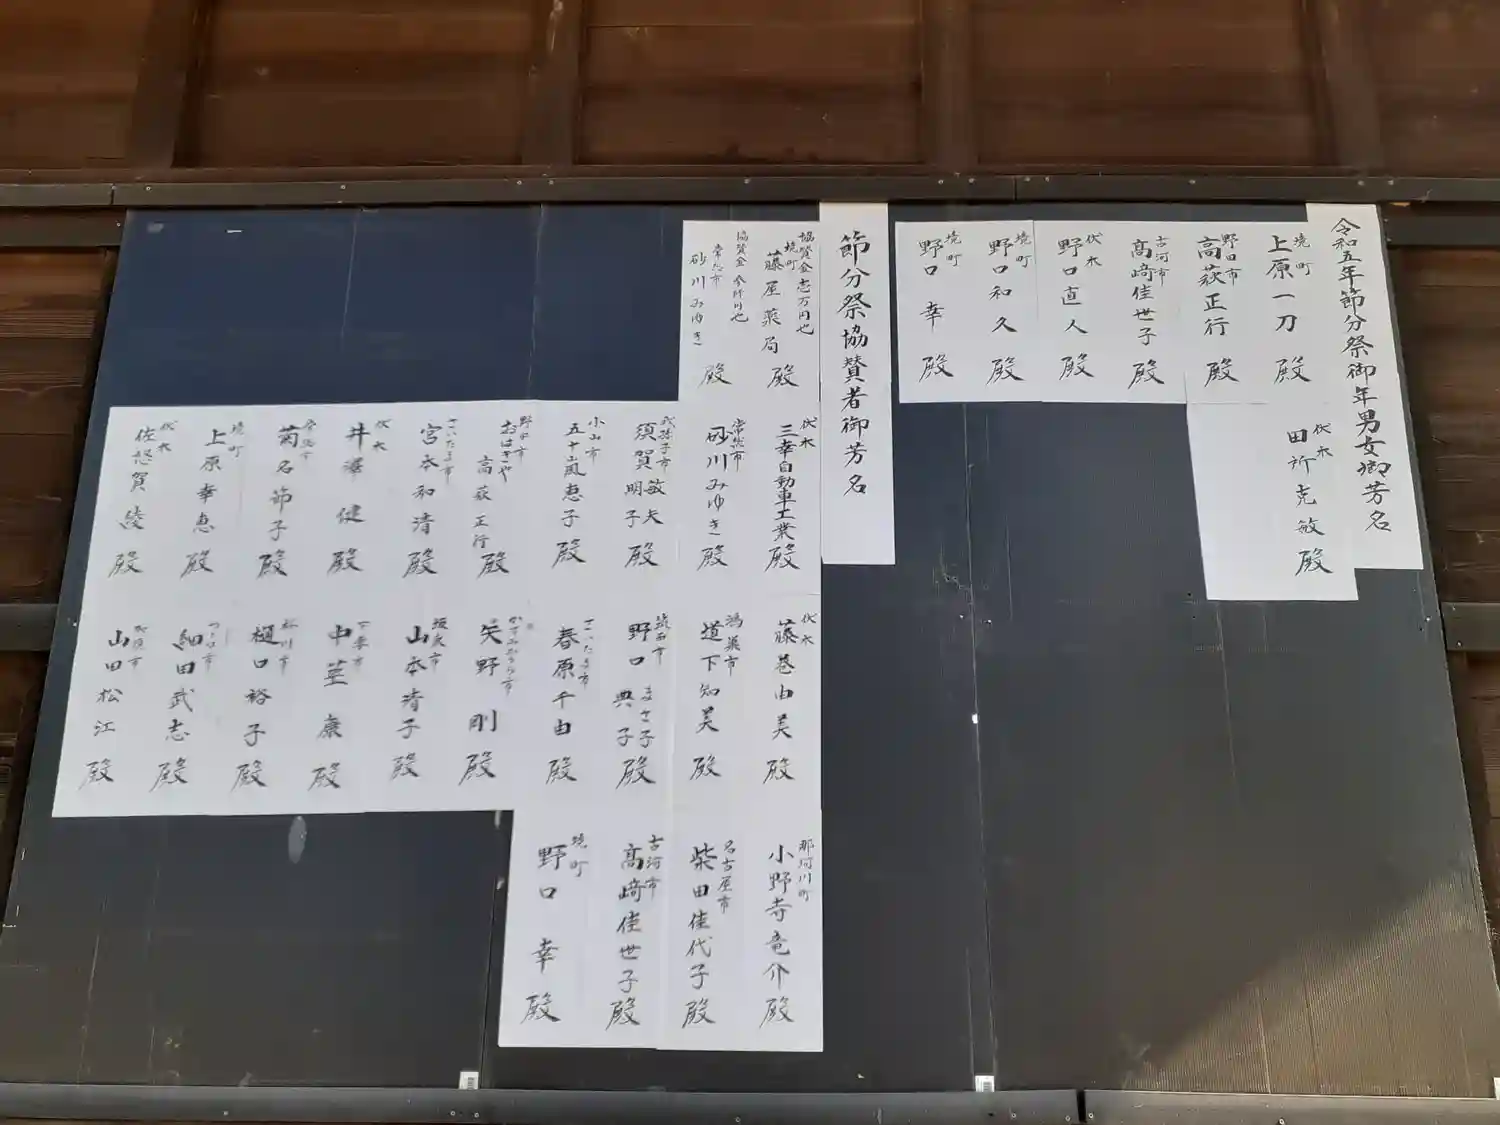 令和五年節分祭御年男女御芳名
境町
上原一刀 殿
野田市
高萩正行 殿
古河市
髙﨑佳世子 殿
伏木
野口直人 殿
境町
野口和久 殿
境町
野口 幸 殿
伏木
田所克敏 殿
節分祭協賛者御芳名
協賛金壱万円也
境町
藤屋薬局 殿
協賛金 参阡円也
常総市
砂川みゆき 殿
伏木
三幸自動車工業 殿
常総市
砂川みゆき 殿
我孫子市
須賀敏夫
明子 殿
小山市
五十嵐恵子 殿
野田市
おはぎや
高萩正行 殿
さいたま市
宮本和清 殿
伏木
井澤 健 殿
菊名節子 殿
境町
上原幸恵 殿
伏木
佐怒賀 綾 殿
伏木
藤巻由美 殿
鴻巣市
道下知美 殿
筑西市
野口典子 まさ子 殿
さいたま市
春原千由 殿
かすみがうら市
矢野 剛 殿
坂東市
山本清子 殿
下妻市
中茎 康 殿
桶川市
樋口裕子 殿
細田武志 殿
山田松江 殿
那珂川町
小野寺竜介 殿
名古屋市
柴田佳代子 殿
古河市
髙﨑佳世子 殿
境町
野口 幸 殿